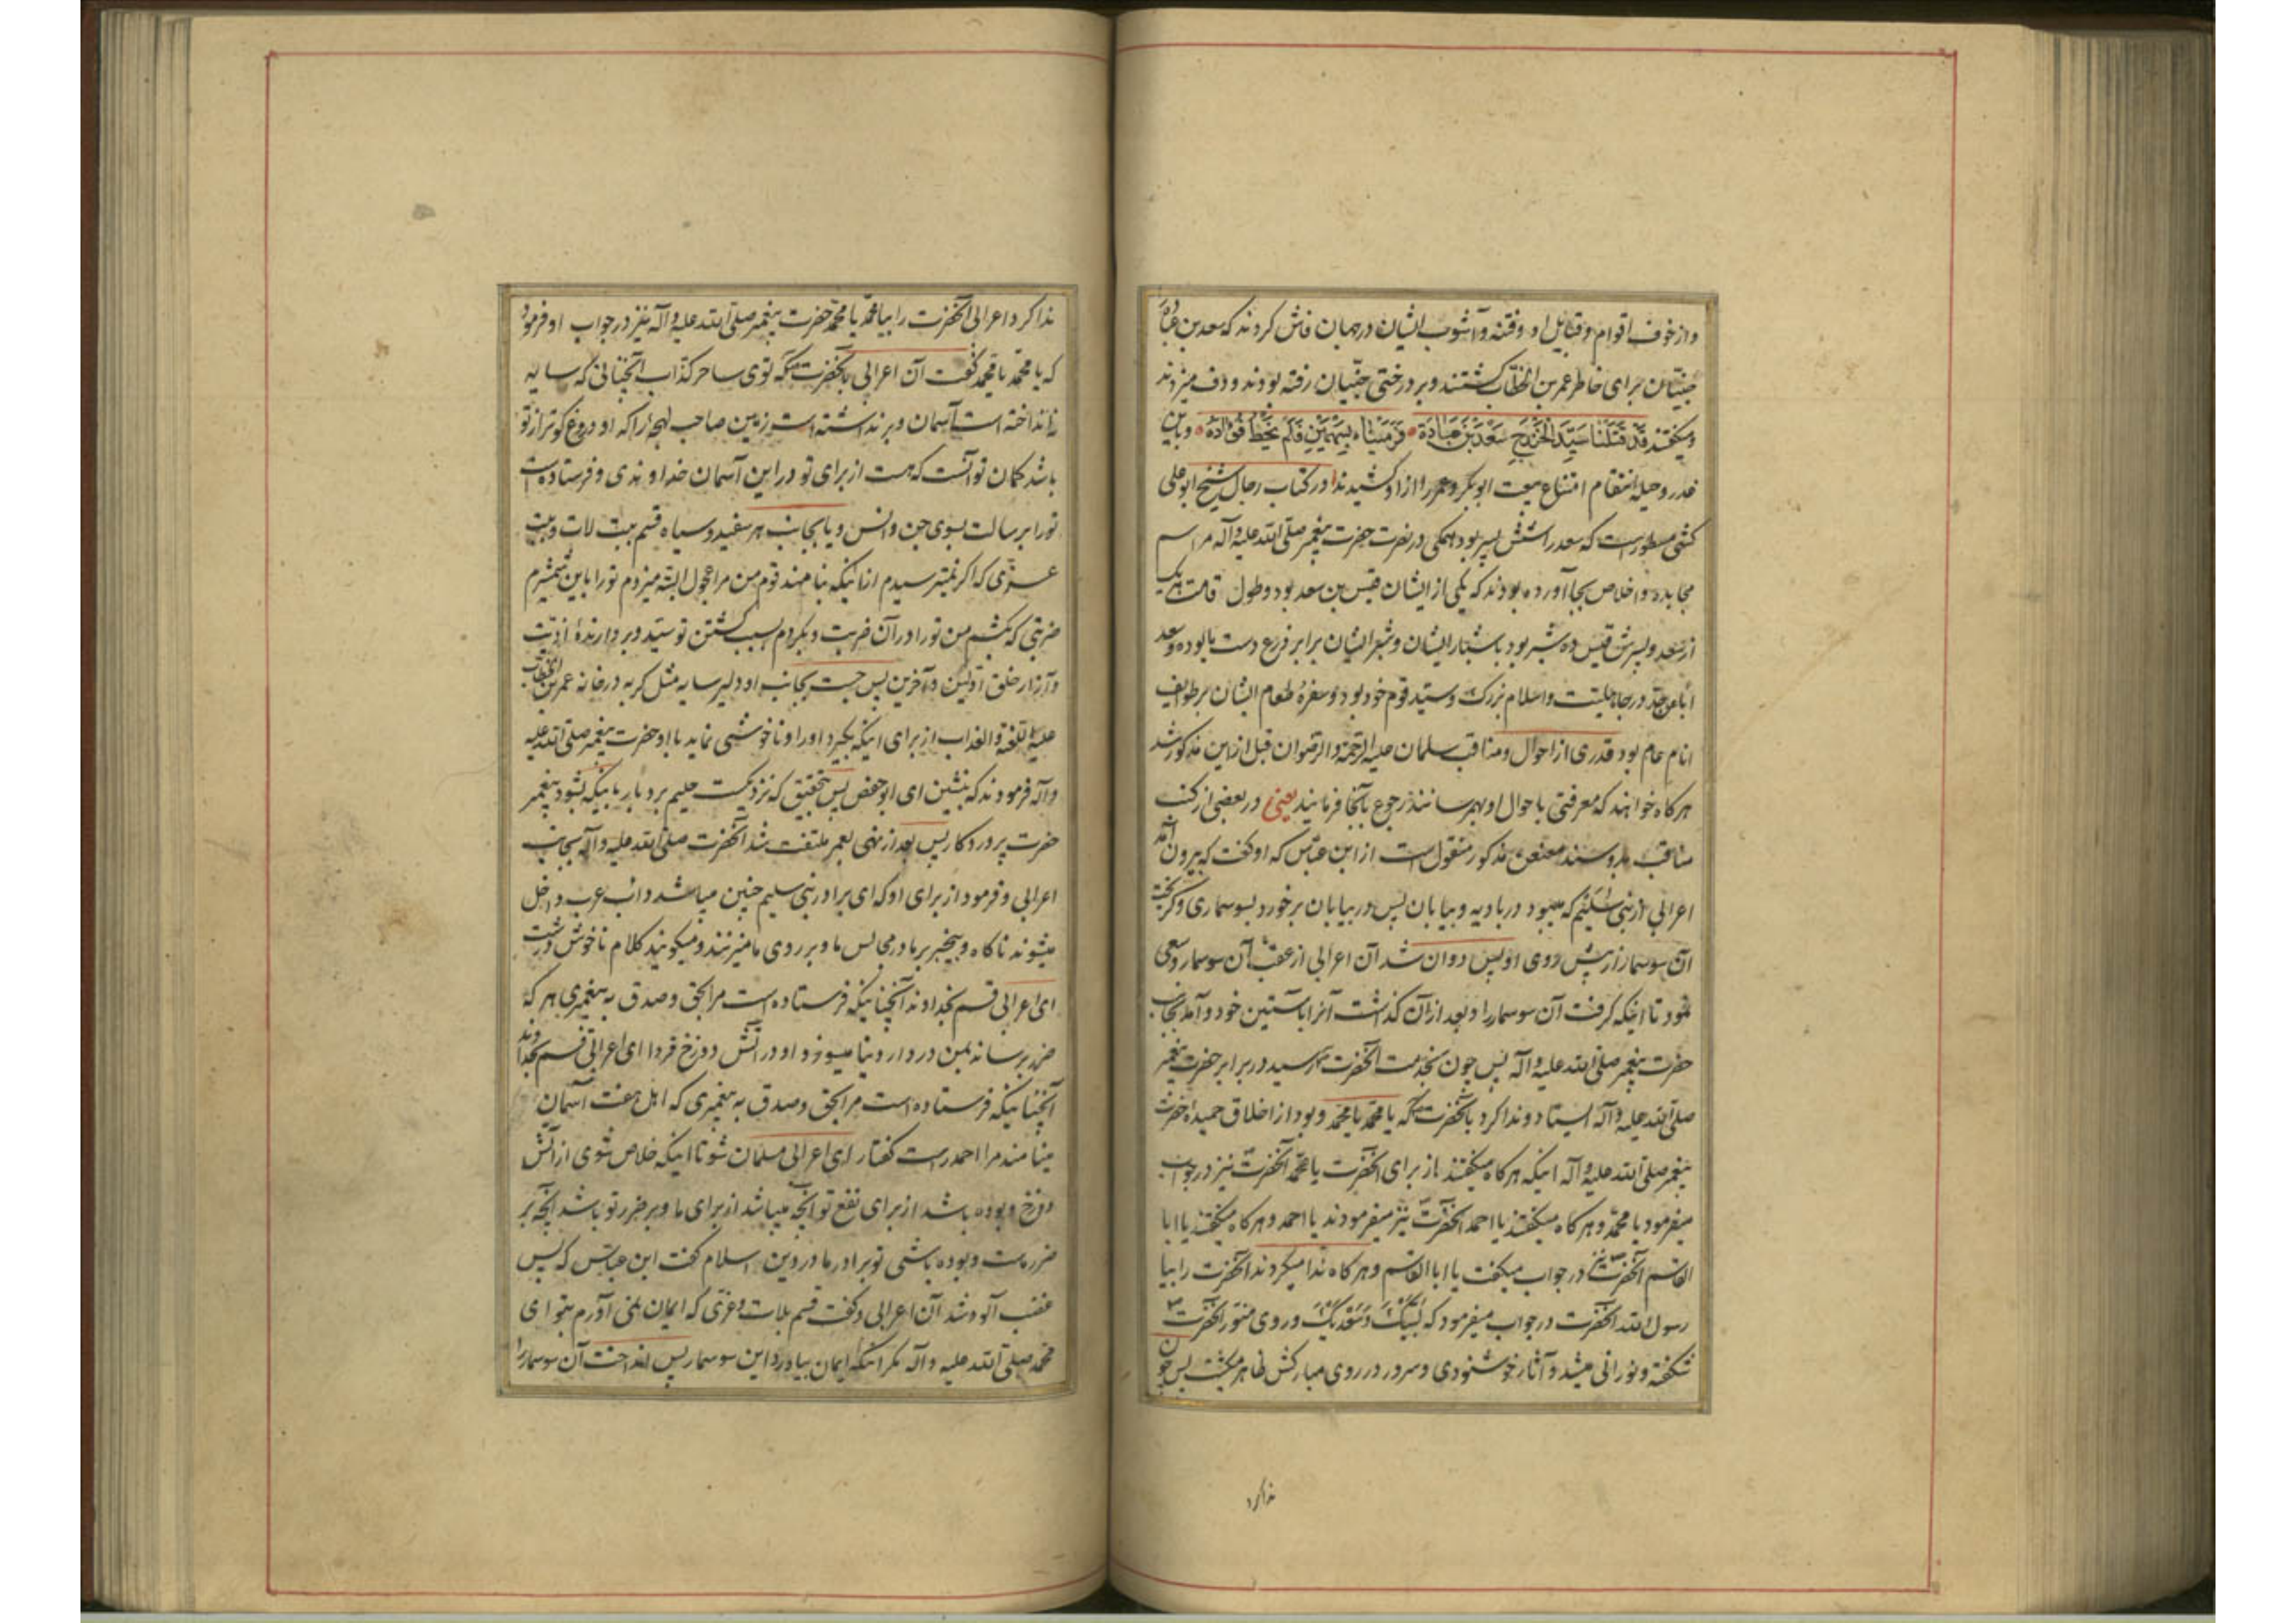 و از خوف اقوام و قبایل او و فتنه و آشوب ایشان در جهان فاش کردند که سعد بن عباده
جنّیان برای خاطر عمر بن الخطّاب کشتند و بر درختی جنّیان رفته بودند و دف میزدند
و میگفتند قَد قَتَلْنَا سَیّدَ الخَزْرَجِ سَعْدَ بْنَ عُبَادَة فَرَمَیْنَاه بِسَهْمَیْنِ فَلَم یَخْطُ فُؤَادَهُ و باین
غدر و حیله انتقام امتناع بیعت ابوبکر و عمر را از او کشیدند در کتاب رجال شیخ ابو علی
کشی مسطور است که سعد را شش پسر بود همگی در نصرت حضرت پیغمبر صلّی الله علیه و آله مراسم
مجاهده و اخلاص بجا آورده بودند که یکی از ایشان قیس بن سعد بود و طول قامت هر یک
از سعد و پسرش قیس ده شبر بود باشبار ایشان و شبر ایشان برابر ذرع دست ما بوده و سعد
اباً عن جدّ در جاهلیت و اسلام بزرک و سیّد قوم خود بود و سفرهٔ طعام ایشان بر طوایف
انام عام بود قدری از احوال و مناقب سلمان علیه الرحمة و الرضوان قبل از این مذکور شد
هر کاه خواهند که معرفتی باحوال او بهم رسانند رجوع بآنجا فرمایند یعنی در بعضی از کتب
مناقب بسند معنعن مذکور منقول است از ابن عبّاس که او کفت که بیرون آمد
اعرابی از بنی سُلَیْم که میبود در بادیه و بیابان پس در بیابان برخورد بسوسماری و کریخت
آن سوسمار از پیش روی او پس دوان شد آن اعرابی از عقب آن سوسمار و سعی
نمود تا اینکه کرفت آن سوسمار را و بعد از آن کذاشت آنرا باستین خود و آمد بجانب
حضرت پیغمبر صلّی الله علیه و آله پس چون بخدمت آنحضرت رسید در برابر حضرت پیغمبر
صلّی الله علیه و آله ایستاد و ندا کرد بآنحضرت که یا محمّد یا محمّد و بود از اخلاق حمیدهٔ حضرت
پیغمبر صلّی الله علیه و آله اینکه هر کاه میکفتند از برای آنحضرت یا محمّد آنحضرت نیز در جواب
میفرمود یا محمّد و هر کاه میکفتند یا احمد آنحضرت نیز میفرمودند یا احمد و هر کاه میکفتند یا ابا
القاسم آنحضرت نیز در جواب میکفت یا ابا القاسم و هر کاه ندا میکردند آنحضرت را بیا
رسول الله آنحضرت در جواب میفرمود که لَبَّیْکَ وَ سَعْدَیْکَ و روی منوّر آنحضرت
شکفته و نورانی میشد و آثار خوشنودی و سرور در روی مبارکش ظاهر میکشت پس چون
ندا کرد
ندا کرد اعرابی آنحضرت را بیا محمّد یا محمّد حضرت پیغمبر صلّی الله علیه و آله نیز در جواب او فرمود
که یا محمّد یا محمّد کفت آن اعرابی بآنحضرت که توی ساحر کذّاب آنچنانی که سایه
نینداخته است آسمان و برنداشته است زمین صاحب لهجه را که او دروغ کوتر از تو
باشد کمان تو آنست که هست از برای تو در این آسمان خداوندی و فرستاده است
تو را برسالت بسوی جن و انس و یا بجانب هر سفید و سیاه قسم ببت لات و ببت
عزّی که اکر نمیترسیدم از اینکه بنامند قوم من مرا عجول البتّه میزدم تو را باین شمشیرم
ضربتی که بکشم من تو را در آن ضربت و بکردم بسبب کشتن تو سیّد و بردارندهٔ اذیّت
و آزار خلق اوّلین و آخرین پس جست بجانب او دلیر سایه مثل کربه در خانه عمر بن الخطاب
علیه اللعنة و العذاب از برای اینکه بکیرد او را و ناخوشی نماید با او حضرت پیغمبر صلّی الله علیه
و آله فرمودند که بنشین ای ابو حفص پس بتحقیق که نزدیکست حلیم بردبار باینکه بشود پیغمبر
حضرت پروردکار پس بعد از نهی بعمر ملتفت شد آنحضرت صلّی الله علیه و آله بجانب
اعرابی و فرمود از برای او که ای برادر بنی سلیم چنین میباشد داب عرب داخل
میشوند ناکاه و بیخبر بر ما در مجالس ما و بر روی ما میزنند و میکویند کلام ناخوش درشت
ای اعرابی قسم بخداوند آنچنانیکه فرستاده است مرا بحق و صدق به پیغمبری هر که
ضرر برساند بمن در دار دنیا میسوزد او در آتش دوزخ فردا ای اعرابی قسم بخداوند
آنچنانیکه فرستاده است مرا بحق و صدق به پیغمبری که اهل هفت آسمان
مینامند مرا احمد راست کفتار ای اعرابی مسلمان شو تا اینکه خلاص شوی از آتش
دوزخ و بوده باشد از برای نفع تو آنچه میباشد از برای ما و بر ضرر تو باشد آنچه بر
ضرر ماست و بوده باشی تو برادر ما در دین اسلام کفت ابن عبّاس که پس
غضب آلود شد آن اعرابی و کفت قسم بلات و عزّی که ایمان نمی آورم بتو ای
محمّد صلّی الله علیه و آله مکر اینکه ایمان بیاورد این سوسمار پس انداخت آن سوسمار را